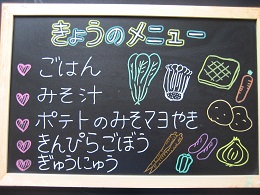 きょうのメニュー
ごはん
みそ汁
ポテトのみそマヨやき
きんぴらごぼう
ぎゅうにゅう